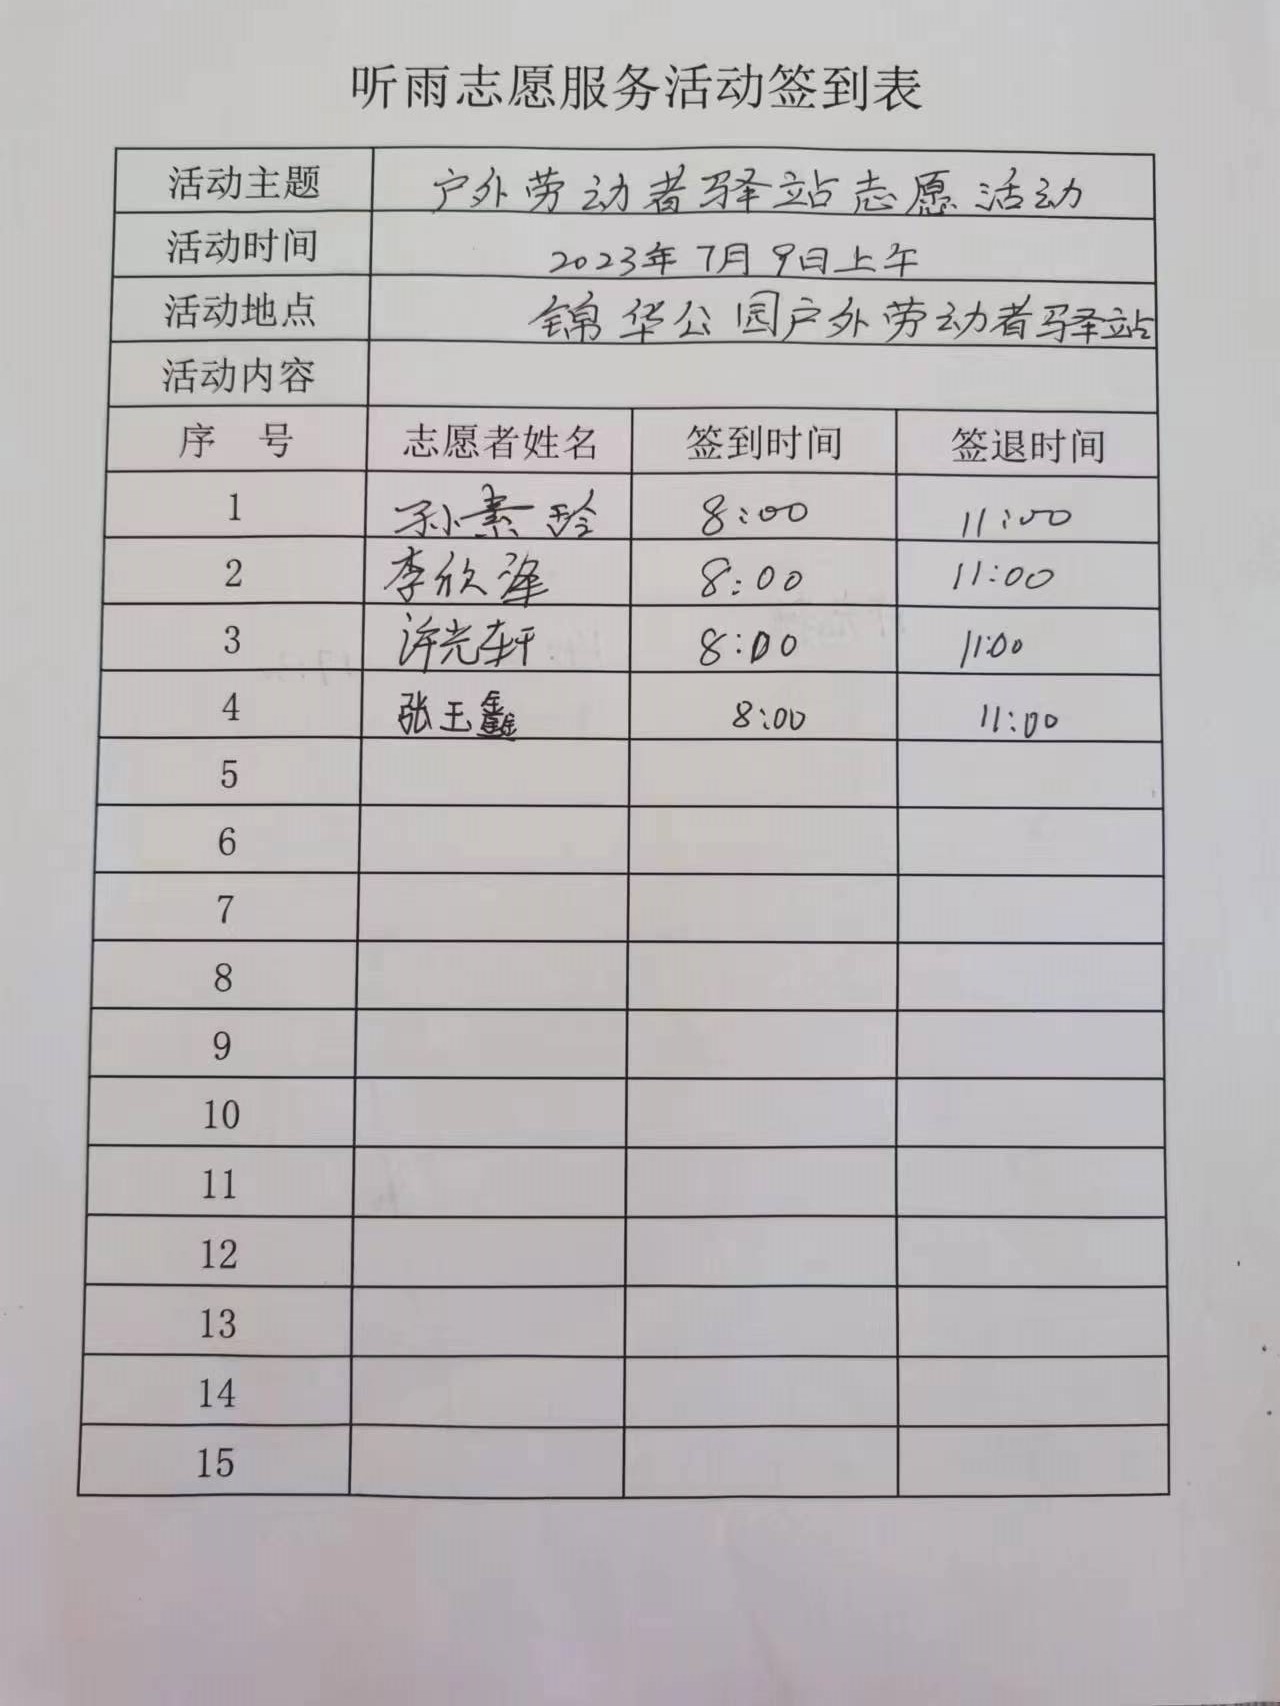 听雨志愿服务活动签到表
活动主题 户外劳动者驿站志愿活动
活动时间 2023年7月9日上午
活动地点 锦华公园户外劳动者驿站
活动内容
序 号 志愿者姓名 签到时间 签退时间
1 孙素玲 8:00 11:00
2 李欣泽 8:00 11:00
3 许光轩 8:00 11:00
4 张玉鑫 8:00 11:00
5
6
7
8
9
10
11
12
13
14
15